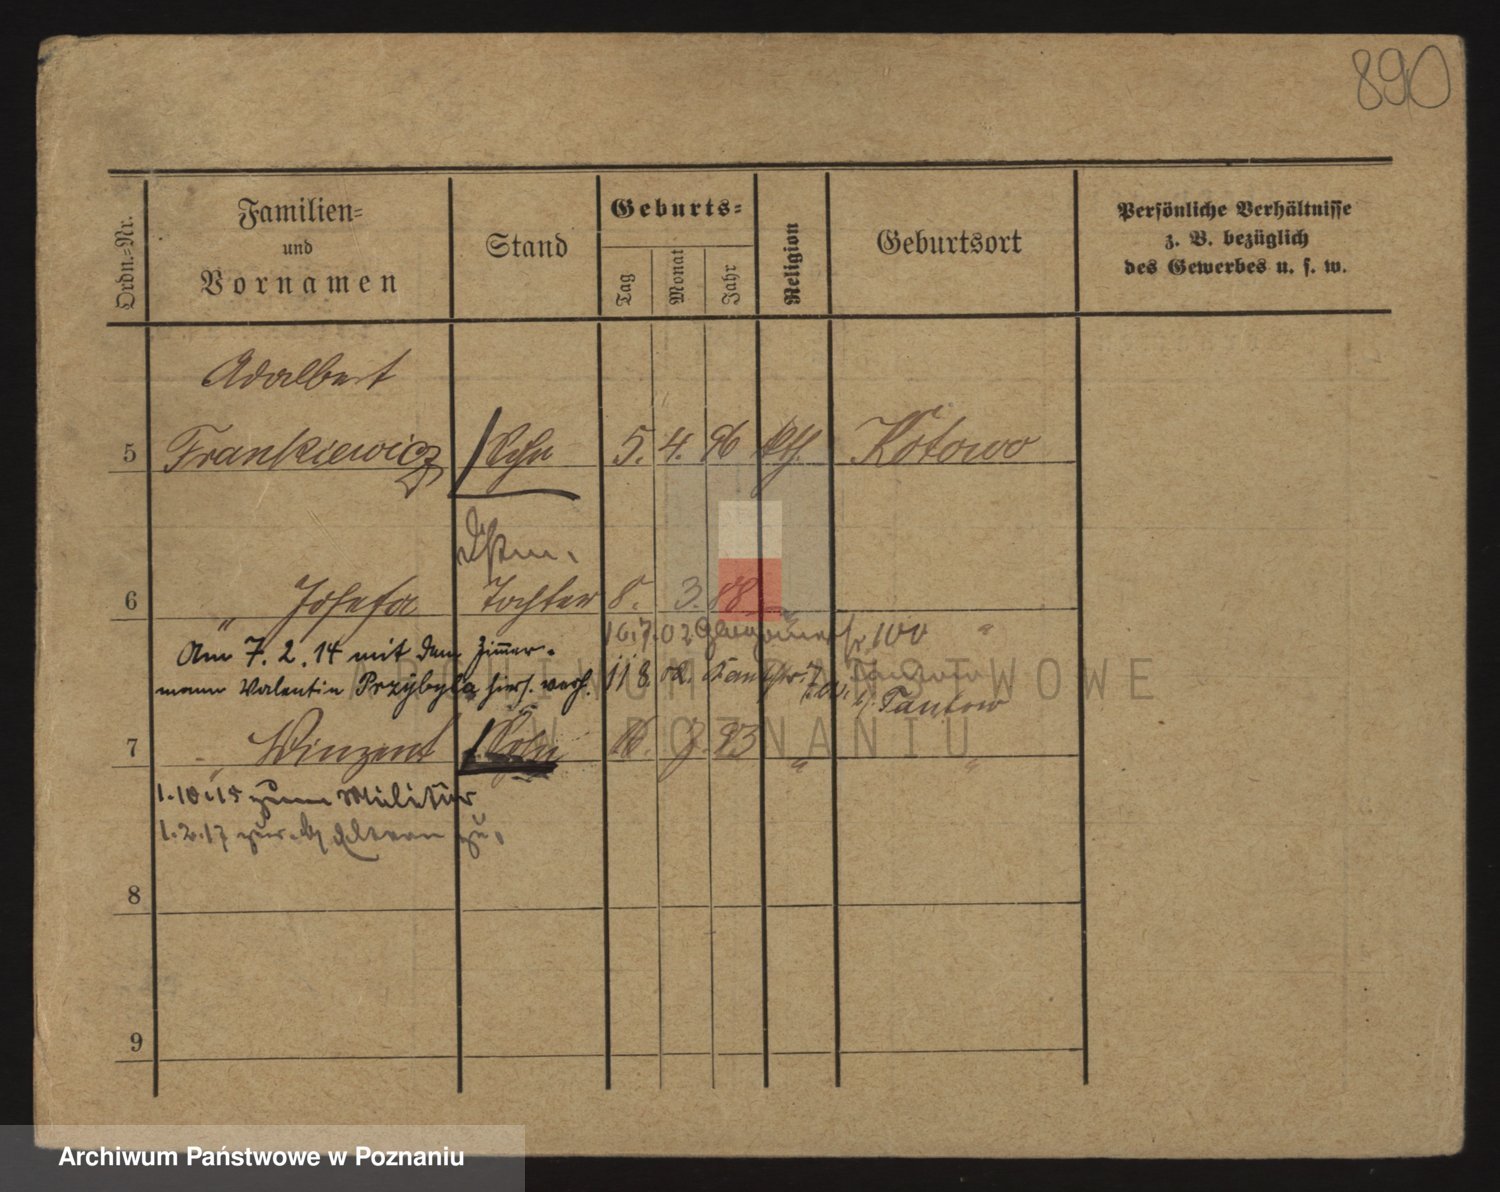 890
Ordn.-Nr.
Familien-
und
Vornamen
Stand
Geburts-
Tag
Monat
Jahr
Religion
Geburtsort
Persönliche Verhältnisse
z. B. bezüglich
des Gewerbes u. s. w.
Adalbert
5 Frankiewicz Sohn 5. 4. 96 kth. Kotowo
6 " Josefa Tochter 8. 3. 88 " "
16.7.02 Glogauer 100
Am 7. 2. 14 mit dem Zimmer-
mann Valentin Przybyla hirs. verh. 11 8 Tankow
7 " Winzent Sohn 93 " "
1.10.15 zum Militär
1.2.17 zur Eltern zu.
8
9
ARCHIWUM PAŃSTWOWE
W POZNANIU
Archiwum Państwowe w Poznaniu